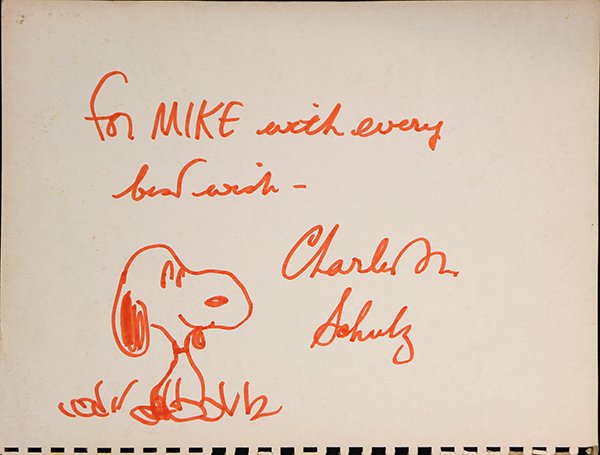 for MIKE with every
best wish -
Charles M.
Schulz